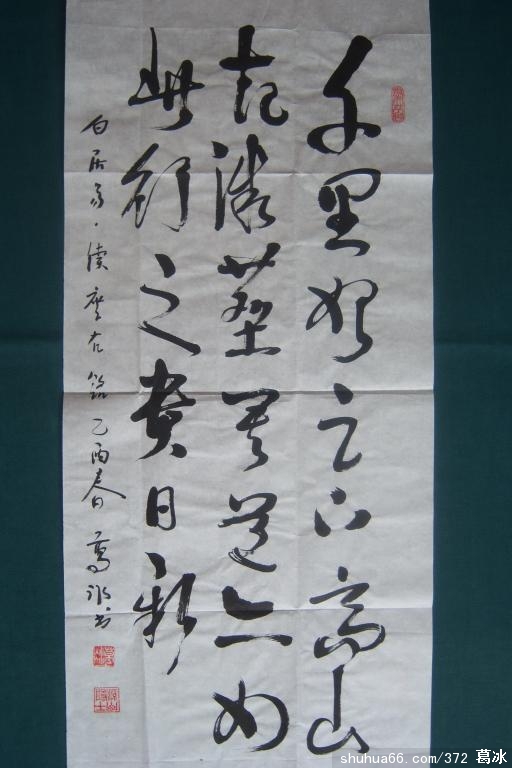 千里始足下高山
起微塵吾道亦如
此行之貴日新
白居易·續座右銘 乙酉春 葛冰書
shuhua66.com/372 葛冰